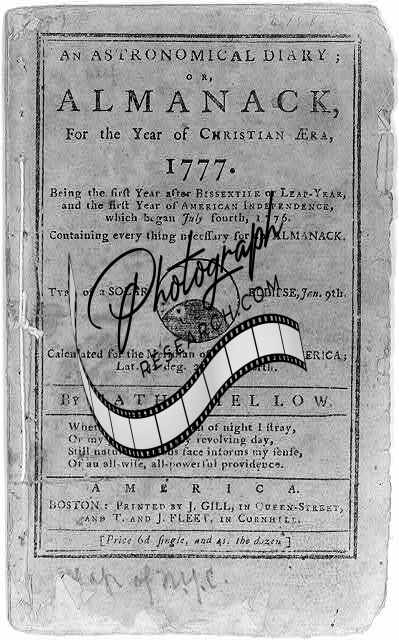 AN ASTRONOMICAL DIARY;
OR,
ALMANACK,
For the Year of CHRISTIAN ÆRA,
1777.
Being the firſt Year after BISSEXTILE or LEAP-YEAR,
and the firſt Year of AMERICAN INDEPENDENCE,
which began July fourth, 1776.
Containing every thing neceſſary for ALMANACK.
of a Jan. 9th.
Photograph
RESEARCH.COM
Calculated for the of
Lat. deg.
BY
of night I ſtray,
Or my revolving day,
Still face informs my ſenſe,
Of an all-wiſe, all-powerful providence.
AMERICA.
BOSTON: PRINTED BY J. GILL, IN QUEEN-STREET,
AND T. AND J. FLEET, IN CORNHILL.
[Price 6d ſingle, and 4s. the dozen]